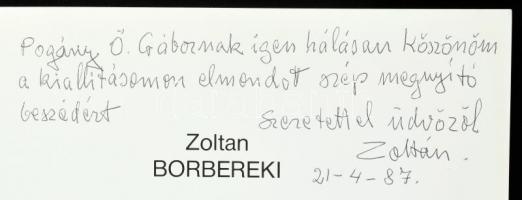 Pogány Ö. Gábornak igen hálásan köszönöm
a kiállitásomon elmondott szép megnyitó
beszédért
szeretettel üdvözöl
Zoltán.
Zoltan
BORBEREKI
21-4-87.